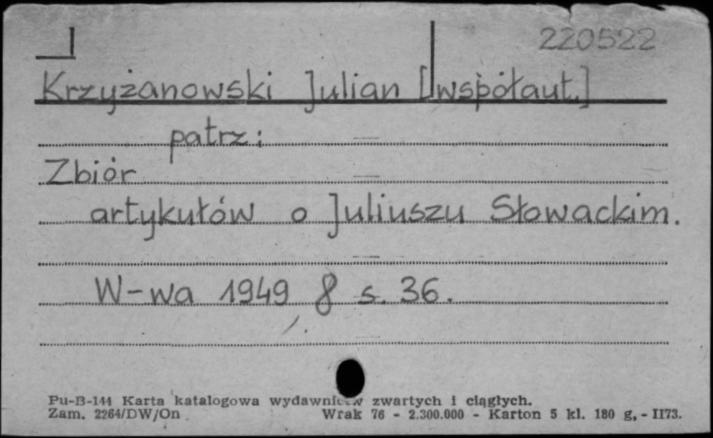 220522
Krzyżanowski Julian [współaut.]
patrz:
Zbiór
artykułów o Juliuszu Słowackim.
W-wa 1949 8 s. 36.
Pu-B-144 Karta katalogowa wydawnictw zwartych i ciągłych.
Zam. 2264/DW/On Wrak 76 - 2.300.000 - Karton 5 kl. 180 g, - II73.